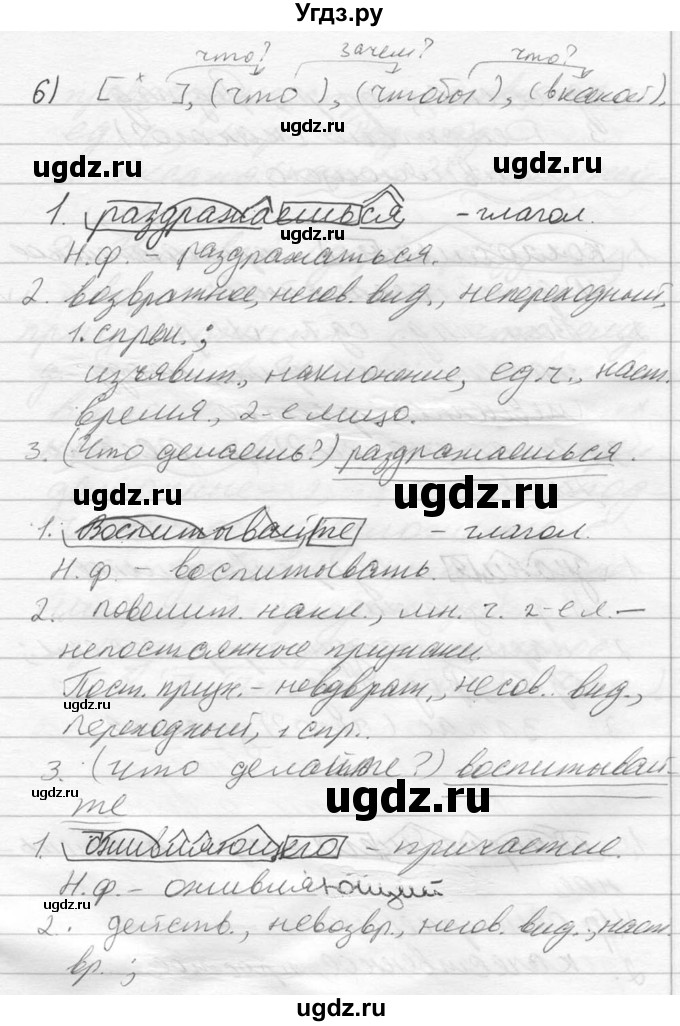 Угдз.ру
что? зачем? что?
6) [ х ], (что ), (чтобы ), (в какой).
ugdz.ru
ugdz.ru ugdz.ru
1. раздражаешься - глагол.
ugdz.ru
Н.ф. - раздражаться.
2. возвратное, несов. вид., непереходный,
1. спряж.;
ugdz.ru ugdz.ru
изъявит., наклонение, ед.ч., наст.
время., 2-е лицо.
3. (Что делаешь?) раздражаешься.
ugdz.ru ugdz.ru
1. Воспитывайте - глагол.
Н.ф. - воспитывать.
ugdz.ru
2. повелит. накл., мн. ч. 2-е л. -
непостоянные признаки.
Пост. призн. - невозврат., несов. вид.,
ugdz.ru ugdz.ru
переходный, 1 спр..
3. (Что делайте?) воспитывай-
ugdz.ru ugdz.ru
те
1. оживляющего - причастие.
ugdz.ru
Н.ф. - оживляющий
ugdz.ru
2. действ., невозвр., несов. вид., наст.
вр.;
ugdz.ru
ugdz.ru